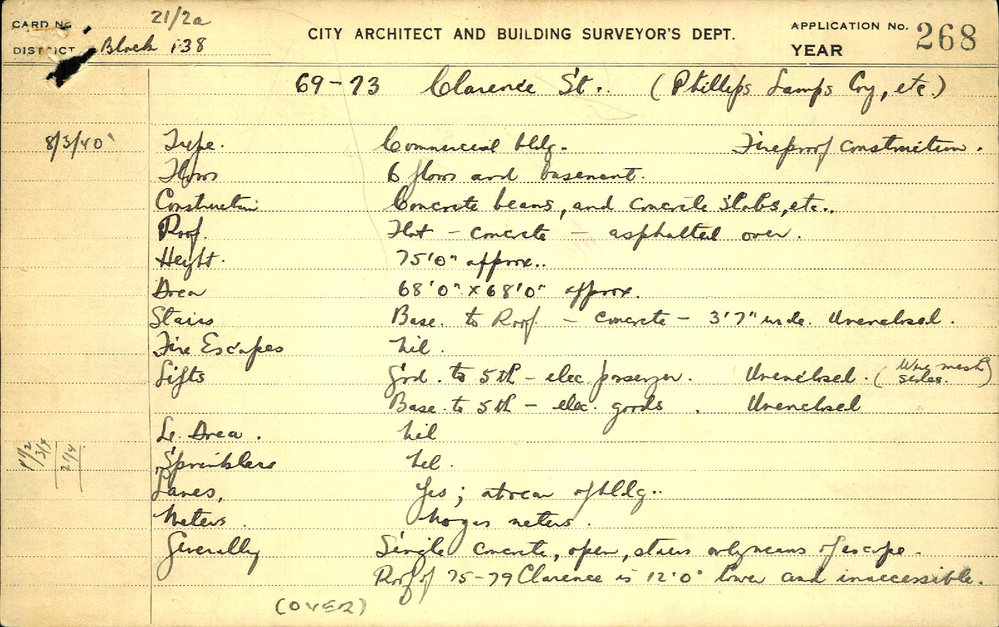 CARD No 21/2a
DISTRICT Block 138
CITY ARCHITECT AND BUILDING SURVEYOR'S DEPT.
APPLICATION No. 268
YEAR
69-73 Clarence St. (Phillips Lamps Coy, etc.)
8/3/40 Type. Commercial bldg. Fireproof construction.
Floors 6 floors and basement.
Construction Concrete beams, and concrete slabs, etc.
Roof. Flat - concrete - asphalted over.
Height. 75'0" approx..
Area 68'0" x 68'0" approx.
Stairs Base. to Roof - concrete - 3'7" wide. Unenclosed.
Fire Escapes Nil.
Lifts Grd. to 5th - elec passenger. Unenclosed. (Wire mesh sides.)
Base. to 5th - elec. goods. Unenclosed
Lt. Area. Nil
Sprinklers Nil.
Lanes, Yes; at rear of bldg..
Meters. No gas meters.
Generally Single concrete, open, stairs only means of escape.
Roof of 75-79 Clarence is 12'0" lower and inaccessible.
(OVER)